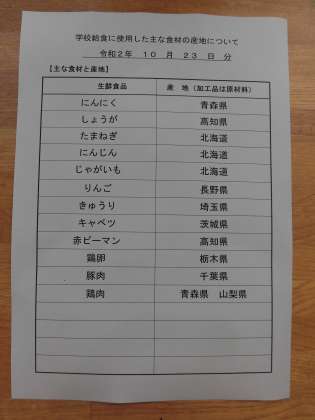 学校給食に使用した主な食材の産地について
令和2年 10 月 23 日 分
【主な食材と産地】
生鮮食品 産 地（加工品は原材料）
にんにく 青森県
しょうが 高知県
たまねぎ 北海道
にんじん 北海道
じゃがいも 北海道
りんご 長野県
きゅうり 埼玉県
キャベツ 茨城県
赤ピーマン 高知県
鶏卵 栃木県
豚肉 千葉県
鶏肉 青森県 山梨県